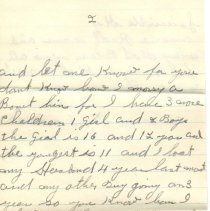 2
and let me Know for you
dont Know how I worry a
Bout him for I have 3 more
children 1 Girl and 2 Boys
the girl is 16 and 12 years and
the youngist is 11 and I lost
my Husband 4 year last
and my other Boy going on 3
year so you Know how I